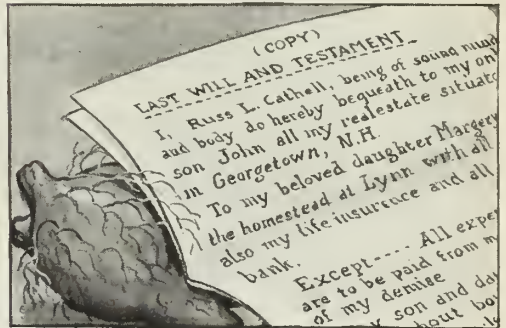 (COPY)
LAST WILL AND TESTAMENT
I, Russ L. Cathell, being of sound mind
and body do hereby bequeath to my on
son John all my realestate situate
in Georgetown, N.H.
To my beloved daughter Margery
the homestead at Lynn with all
also my life insurence and all
bank.
Except---- All exper
are to be paid from m
of my demise
son and dau
bout bo